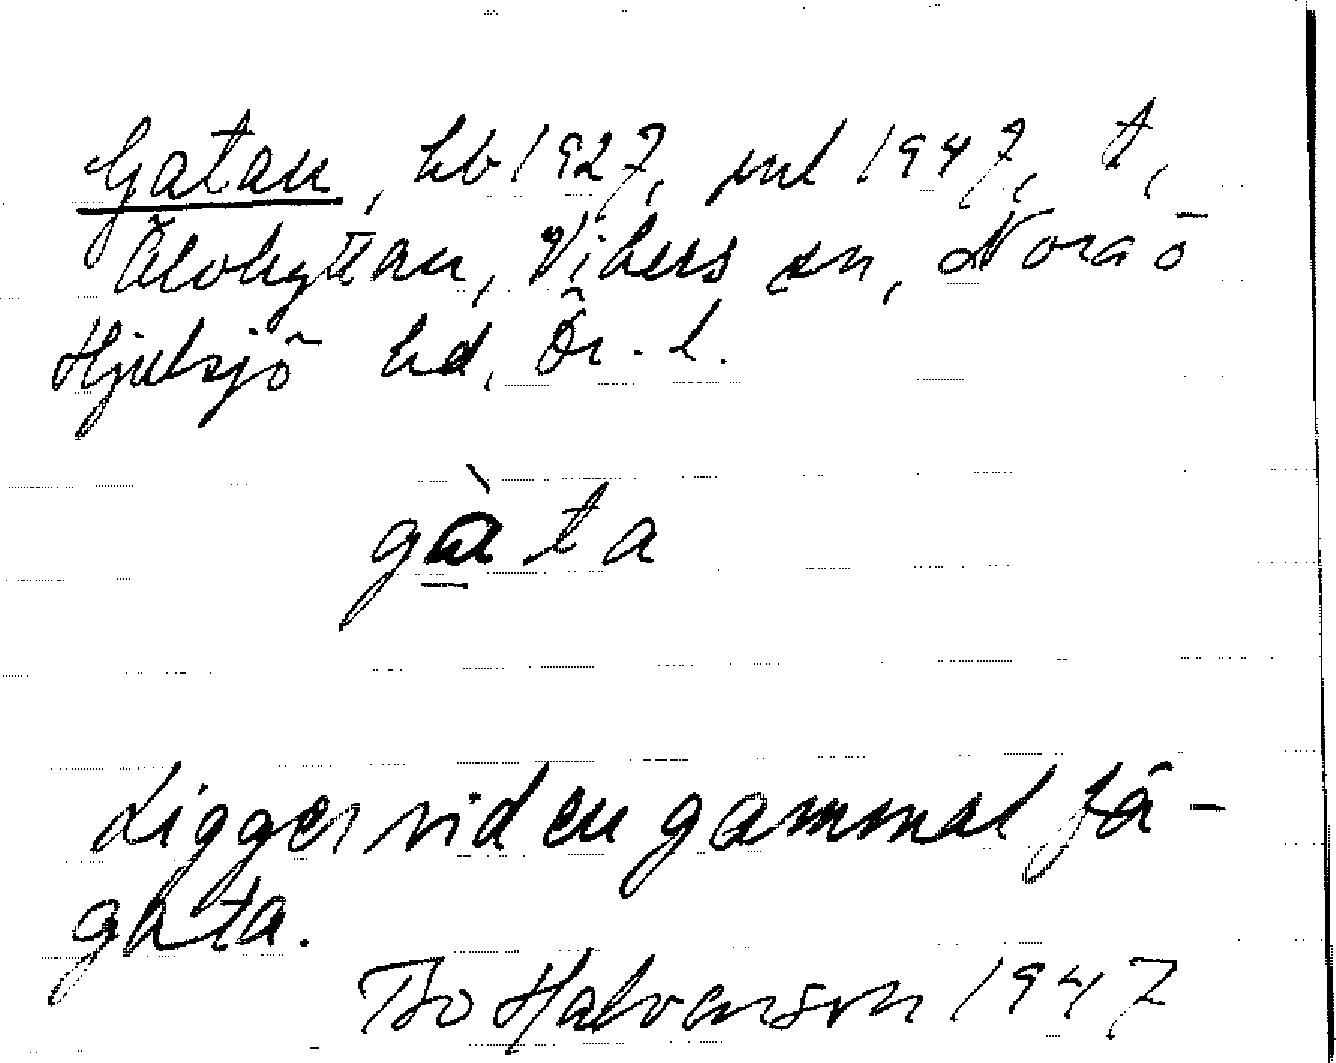 Gatan, hb 1927, jul 1947, t,
Älvhyttan, Vikers sn, Nora o
Hjulsjö hd, Ör. l.
gàta
Ligger vid en gammal fä-
gata.
Bo Halvarson 1947